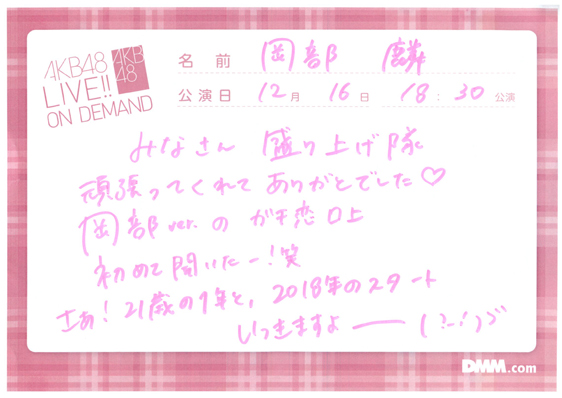 AKB48
LIVE!!
ON DEMAND
AKB
48
名前 岡部 麟
公演日 12月 16日 18:30 公演
みなさん 盛り上げ隊
頑張ってくれて ありがとでした♡
岡部ver.の ガチ恋口上
初めて聞いたー!笑
さぁ! 21歳の1年と、2018年のスタート
いっきますよ ー (!-!)づ
DMM.com